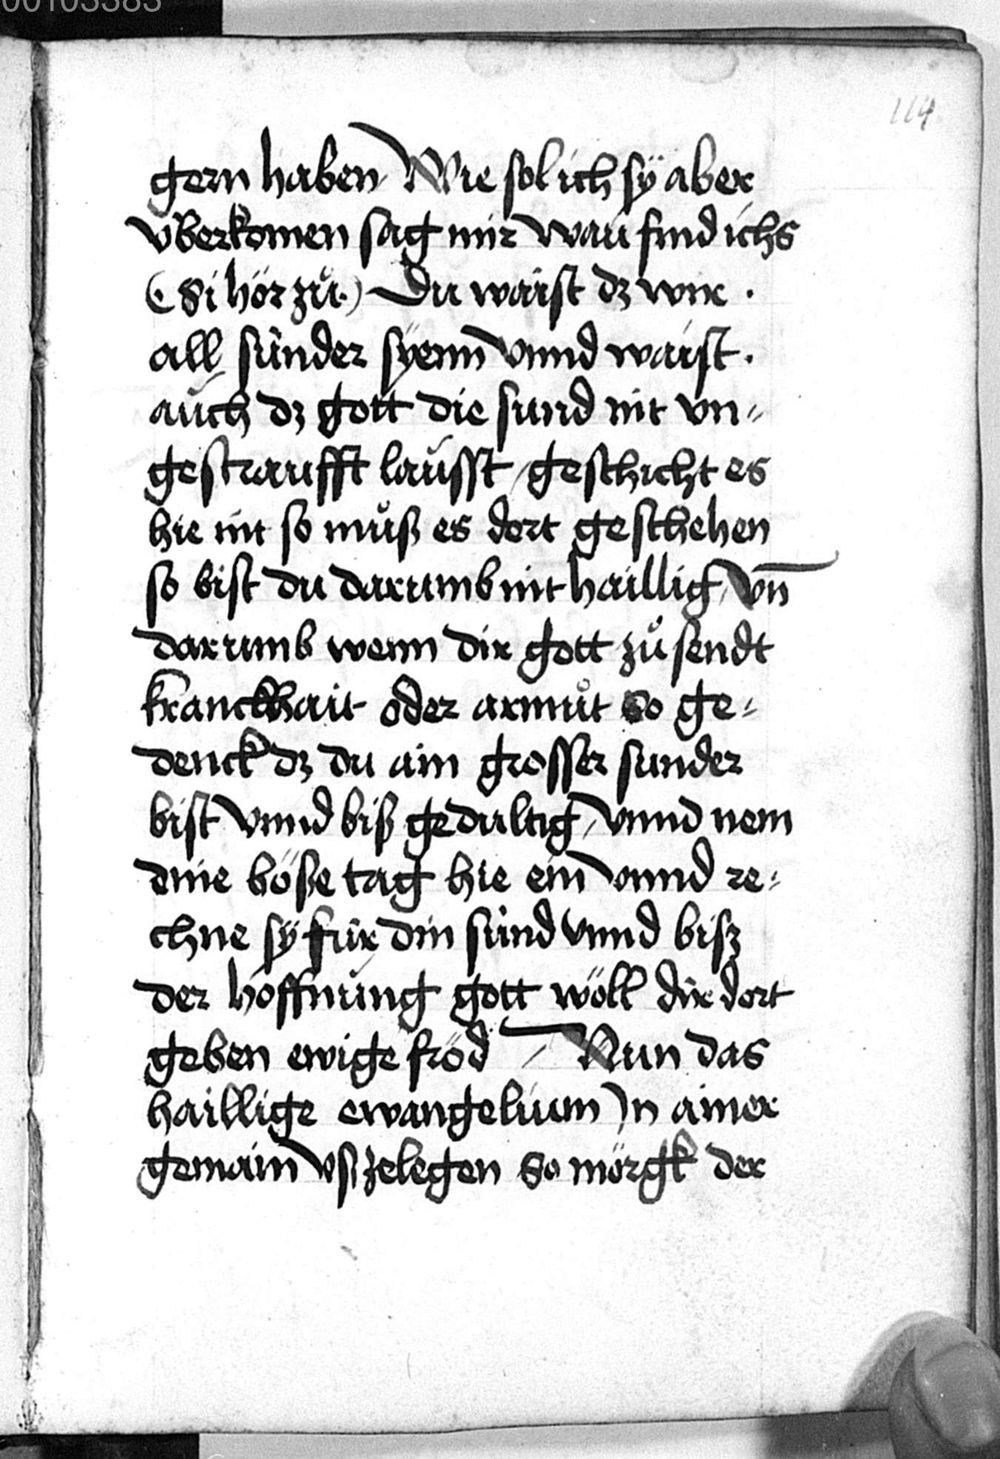 00103383
114
gern haben Wie sol ich sÿ aber
vberkomen sag mir wau find ichs
(Si hör zuͦ.) Du waist dz wir .
all sünder sÿenn vnnd waist .
auch dz gott die sund nit vn⸗
gestraufft laüsst / geschicht es
hie nit so muͦß es dort geschehen
so bist du darumb nit haillig / vn̄
darumb wenn dir gott zuͦ sendt
kranckhait oder armuͦt So ge⸗
denck dz du ain grosser sunder
bist vnnd biß gedultig / vnnd nem
dine böße tag hie ein vnnd re⸗
chne sÿ für din sünd vnnd bisz
der hoffnüng gott wöll dir dort
geben ewige fröd / Nun das
haillige ewangelium Jn ainer
gemain vßzelegen So mörgk der